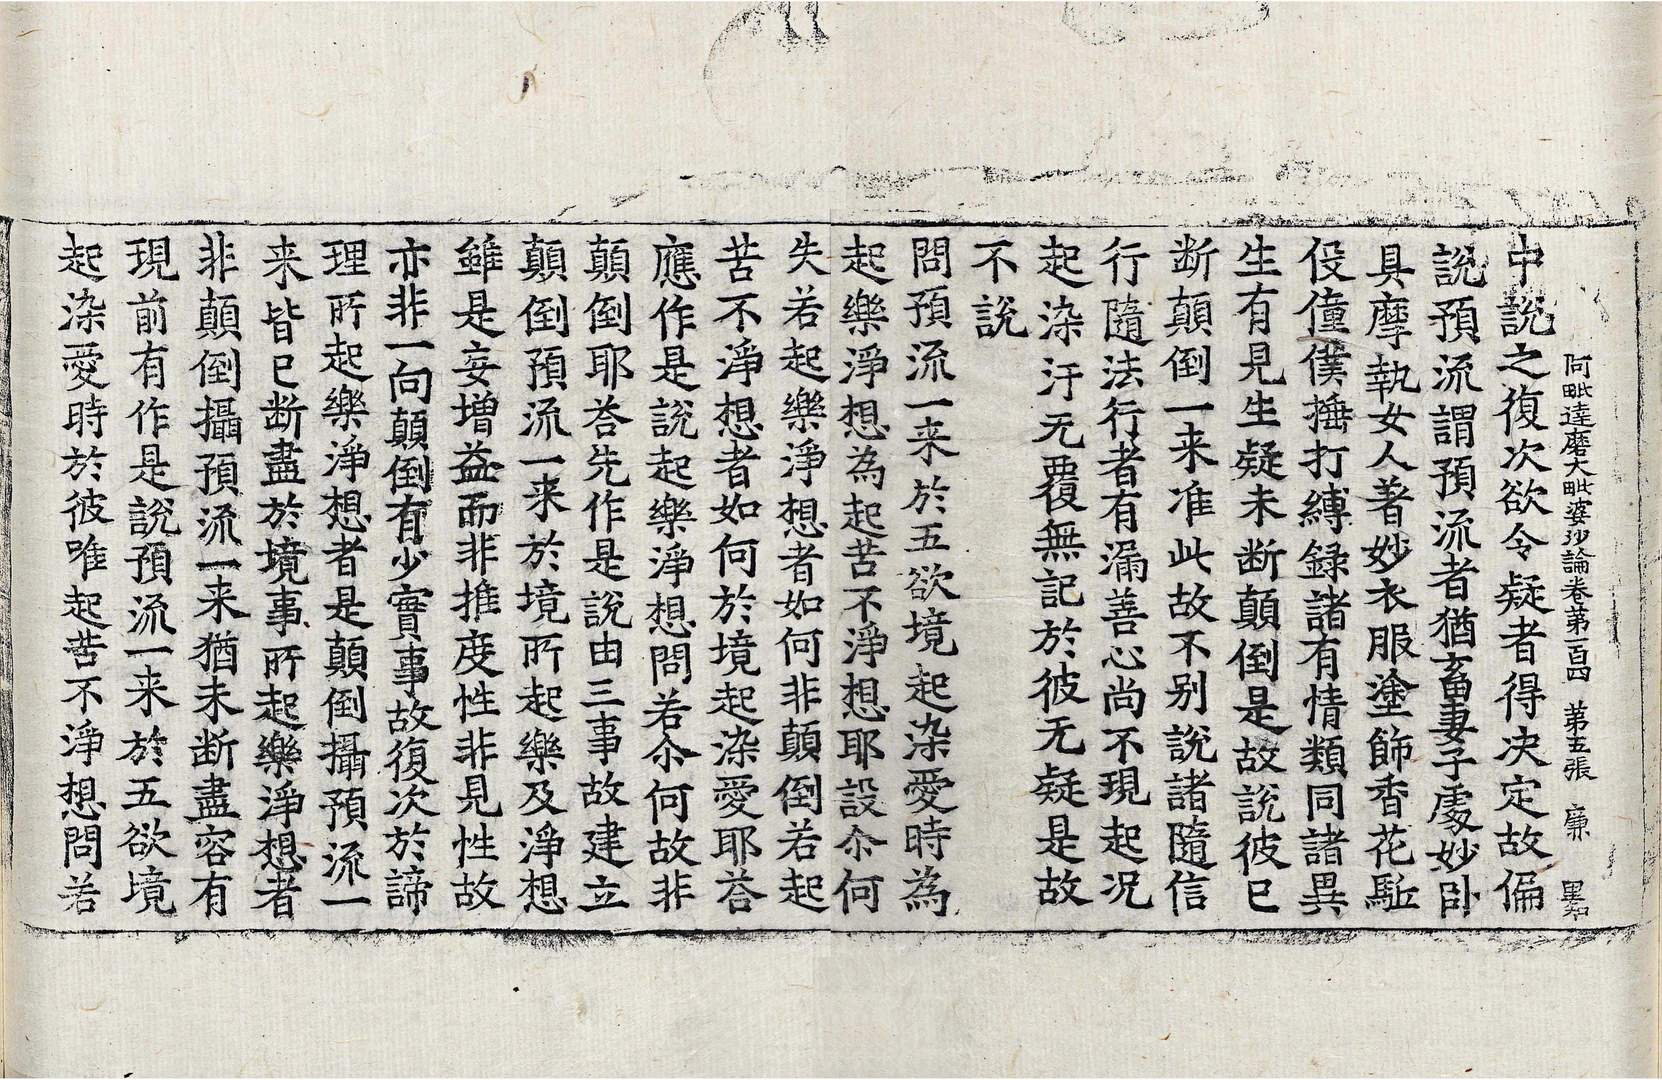 阿毗達磨大毗婆沙論卷第一百四 第五張 廉 里知
中說之復次欲令疑者得決定故偏
說預流謂預流者猶畜妻子處妙卧
具摩執女人著妙衣服塗飾香花駈
伇僮僕捶打縛録諸有情類同諸異
生有見生疑未断顛倒是故說彼已
断顛倒一来准此故不别說諸隨信
行隨法行者有漏善心尚不現起况
起染汙无覆無記於彼无疑是故
不說
問預流一来於五欲境起染愛時為
起樂淨想為起苦不淨想耶設尒何
失若起樂淨想者如何非顛倒若起
苦不淨想者如何於境起染愛耶荅
應作是說起樂淨想問若尒何故非
顛倒耶荅先作是說由三事故建立
顛倒預流一来於境所起樂及淨想
雖是妄增益而非推度性非見性故
亦非一向顛倒有少實事故復次於諦
理所起樂淨想者是顛倒攝預流一
来皆已断盡於境事所起樂淨想者
非顛倒攝預流一来猶未断盡容有
現前有作是說預流一来於五欲境
起染愛時於彼唯起苦不淨想問若